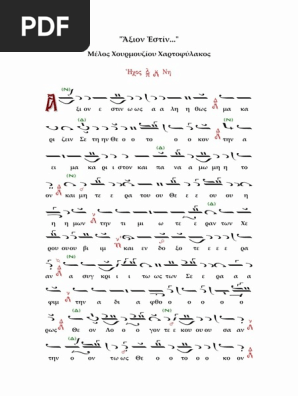 PDF
"Ἄξιον Ἐστίν..."
Μέλος Χουρμουζίου Χαρτοφύλακος
Ἦχος Νη
Α ξι ον ε στιν ω ως α α λη η θως μα κα
ρι ζειν Σε τη την Θε ο ο το ο ο κον την α
ει μα κα ρι στον και πα να α μω μη η το
ον και μη τε ε ρα του ου Θε ε ου ου η
η η μων την τι μι ω τε ε ραν των Χε
ρου ου ου βι ιμ και εν δο ξο τε ε ε ρα
αν α α συγ κρι ι ι τω ως των Σε ε ρα α α
φιμ την α δι α φθο ο ο ο ο
ρως Θε ον Λο ο ο γον τε ε κου ου ου σα αν
την ο ον τω ως Θε ο το ο ο κο ον